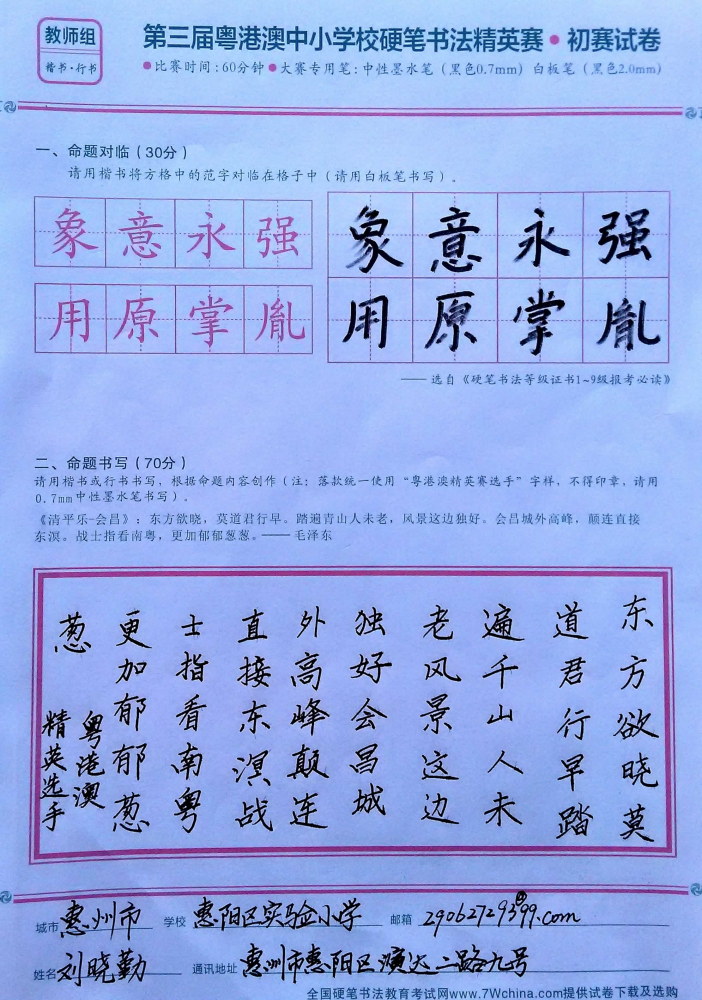 教师组
楷书·行书
第三届粤港澳中小学校硬笔书法精英赛•初赛试卷
•比赛时间：60分钟•大赛专用笔：中性墨水笔（黑色0.7mm）白板笔（黑色2.0mm）
一、命题对临（30分）
请用楷书将方格中的范字对临在格子中（请用白板笔书写）。
象意永强
用原掌胤
象意永强
用原掌胤
——选自《硬笔书法等级证书1~9级报考必读》
二、命题书写（70分）
请用楷书或行书书写，根据命题内容创作（注：落款统一使用“粤港澳精英赛选手”字样，不得印章，请用
0.7mm中性墨水笔书写）。
《清平乐-会昌》：东方欲晓，莫道君行早。踏遍青山人未老，风景这边独好。会昌城外高峰，颠连直接
东溟。战士指看南粤，更加郁郁葱葱。——毛泽东
东方欲晓莫
道君行早踏
遍千山人未
老风景这边
独好会昌城
外高峰颠连
直接东溟战
士指看南粤
更加郁郁葱
葱
粤港澳
精英选手
城市 惠州市 学校 惠阳区实验小学 邮箱
姓名 刘晓勤 通讯地址 惠州市惠阳区演达二路九号
全国硬笔书法教育考试网www.7Wchina.com提供试卷下载及选购